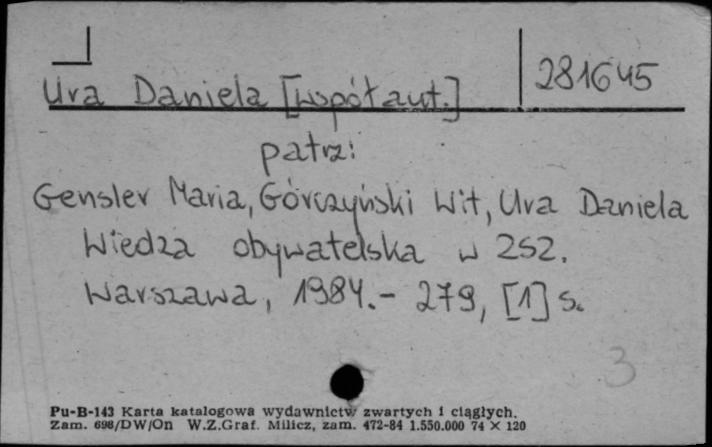 281645
Ura Daniela [współaut.]
patrz:
Gensler Maria, Górczyński Wit, Ura Daniela
Wiedza obywatelska w ZSZ.
Warszawa, 1984.- 279, [1] s.
3
Pu-B-143 Karta katalogowa wydawnictw zwartych i ciągłych.
Zam. 698/DW/On W.Z.Graf. Milicz, zam. 472-84 1.550.000 74 X 120